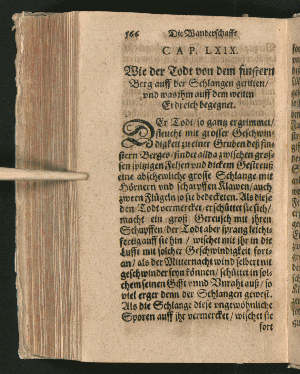 166 Die Wanderschafft
CAP. LXIX.
Wie der Todt von dem finstern
Berg auff der Schlangen geritten/
vnd was jhm auff dem weiten
Erdreich begegnet.
DEr Todt/ so gang ergrimmet/
fleucht mit grosser Geschwin-
digkeit zu einer Gruben deß fin-
stern Berges/ findet allda zwischen gros-
sen spitzigen Felsen vnd dickem Gestreuß
eine abschewliche grosse Schlange mit
Hörnern vnd scharpffen Klawen/ auch
zween Flügeln so sie bedecketen. Als diese
den Todt vermercket/ erschüttet sie sich/
macht ein groß Gereusch mit jhren
Schupffen/ der Todt aber sprang leicht-
fertig auff sie hin/ wischet mit jhr in die
Lufft mit solcher Geschwindigkeit fort
an/ als der Mitternacht wind selber nit
geschwinder seyn können/ schüttet in sol-
chem seinen Gifft vnnd Vnraht auß/ so
viel erger denn der Schlangen gewest.
Als die Schlange diese vngewöhnliche
Sporen auff jhr vermercket/ wischet sie
fort